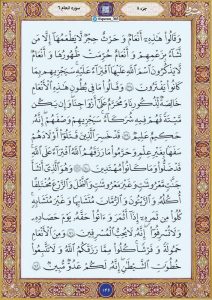 جزء ٨
سوره انعام ٦
وَقَالُوا۟ هَٰذِهِۦٓ أَنْعَٰمٌ وَحَرْثٌ حِجْرٌ لَّا يَطْعَمُهَآ إِلَّا مَن
نَّشَآءُ بِزَعْمِهِمْ وَأَنْعَٰمٌ حُرِّمَتْ ظُهُورُهَا وَأَنْعَٰمٌ
لَّا يَذْكُرُونَ ٱسْمَ ٱللَّهِ عَلَيْهَا ٱفْتِرَآءً عَلَيْهِ سَيَجْزِيهِم بِمَا
كَانُوا۟ يَفْتَرُونَ ١٣٨ وَقَالُوا۟ مَا فِى بُطُونِ هَٰذِهِ ٱلْأَنْعَٰمِ
خَالِصَةٌ لِّذُكُورِنَا وَمُحَرَّمٌ عَلَىٰٓ أَزْوَٰجِنَا وَإِن يَكُن
مَّيْتَةً فَهُمْ فِيهِ شُرَكَآءُ سَيَجْزِيهِمْ وَصْفَهُمْ إِنَّهُۥ
حَكِيمٌ عَلِيمٌ ١٣٩ قَدْ خَسِرَ ٱلَّذِينَ قَتَلُوٓا۟ أَوْلَٰدَهُمْ
سَفَهًۢا بِغَيْرِ عِلْمٍ وَحَرَّمُوا۟ مَا رَزَقَهُمُ ٱللَّهُ ٱفْتِرَآءً عَلَى ٱللَّهِ
قَدْ ضَلُّوا۟ وَمَا كَانُوا۟ مُهْتَدِينَ ١٤٠ وَهُوَ ٱلَّذِىٓ أَنشَأَ
جَنَّٰتٍ مَّعْرُوشَٰتٍ وَغَيْرَ مَعْرُوشَٰتٍ وَٱلنَّخْلَ وَٱلزَّرْعَ مُخْتَلِفًا
أُكُلُهُۥ وَٱلزَّيْتُونَ وَٱلرُّمَّانَ مُتَشَٰبِهًا وَغَيْرَ مُتَشَٰبِهٍ
كُلُوا۟ مِن ثَمَرِهِۦٓ إِذَآ أَثْمَرَ وَءَاتُوا۟ حَقَّهُۥ يَوْمَ حَصَادِهِۦ
وَلَا تُسْرِفُوٓا۟ إِنَّهُۥ لَا يُحِبُّ ٱلْمُسْرِفِينَ ١٤١ وَمِنَ ٱلْأَنْعَٰمِ
حَمُولَةً وَفَرْشًا كُلُوا۟ مِمَّا رَزَقَكُمُ ٱللَّهُ وَلَا تَتَّبِعُوا۟
خُطُوَٰتِ ٱلشَّيْطَٰنِ إِنَّهُۥ لَكُمْ عَدُوٌّ مُّبِينٌ ١٤٢
١٤٦